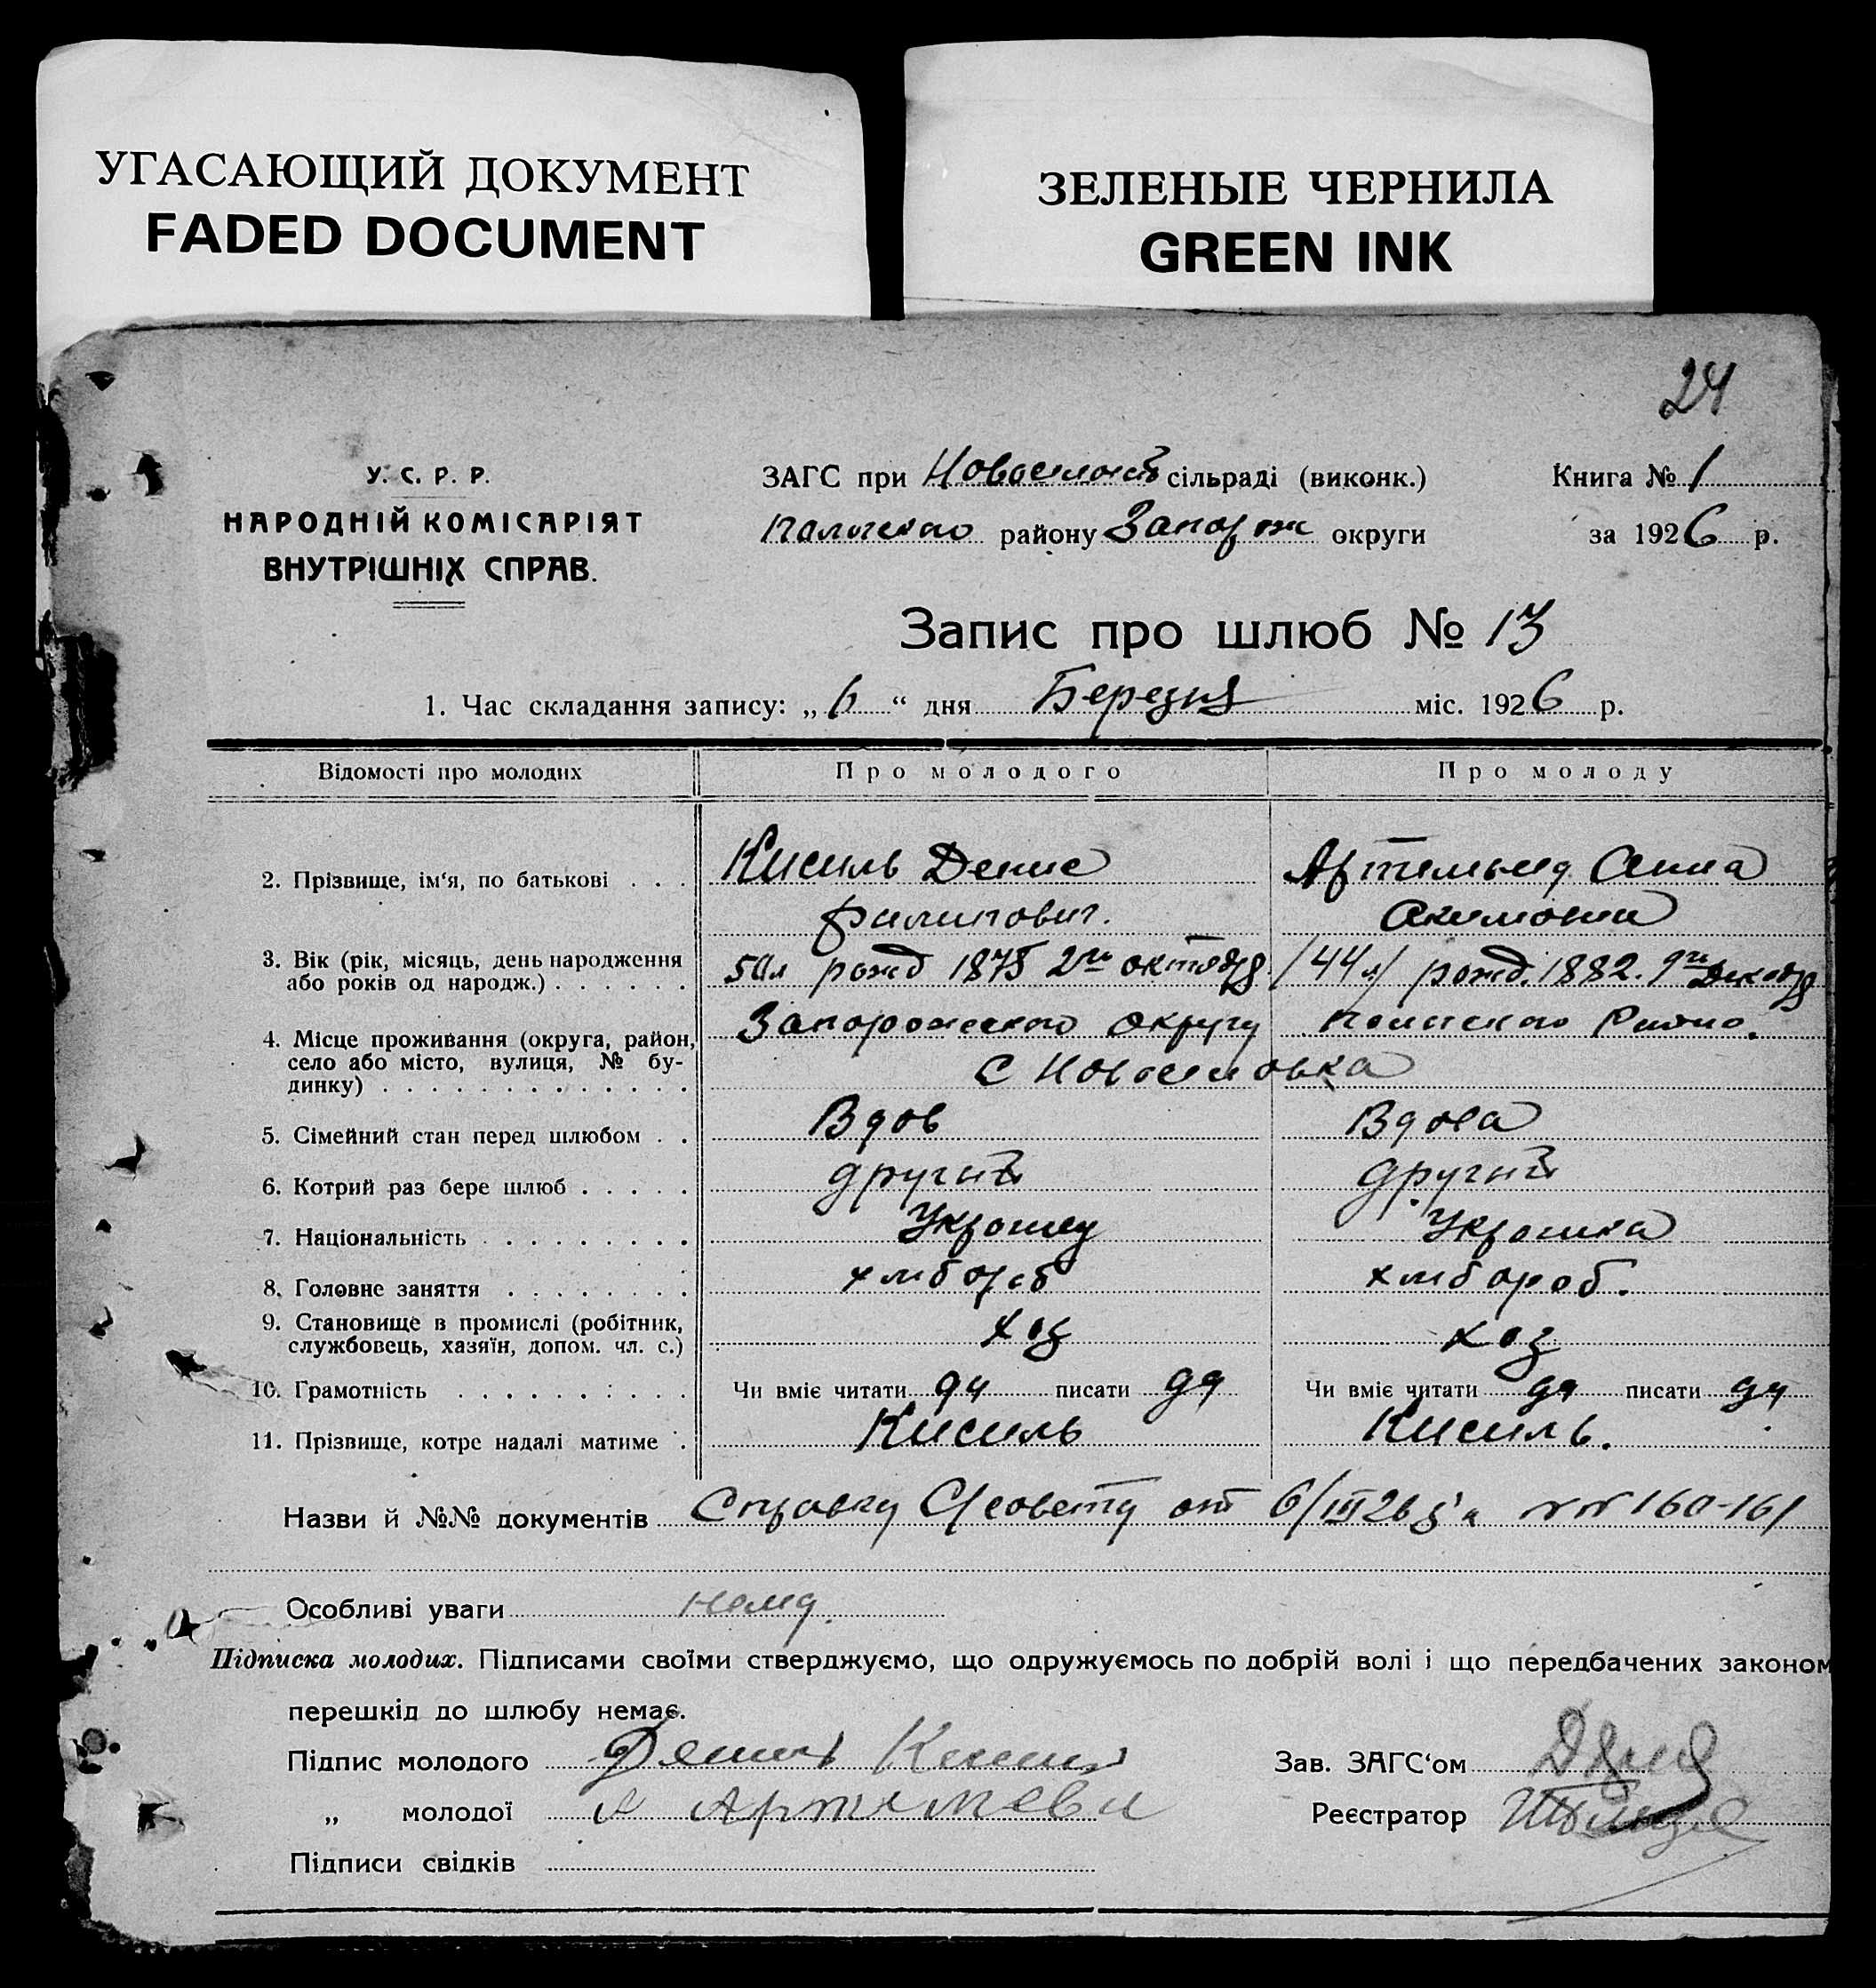 УГАСАЮЩИЙ ДОКУМЕНТ
FADED DOCUMENT
ЗЕЛЕНЫЕ ЧЕРНИЛА
GREEN INK
24
У. С. Р. Р.
НАРОДНІЙ КОМІСАРІЯТ
ВНУТРІШНІХ СПРАВ.
ЗАГС при сільраді (виконк.)
району Запорож округи
Книга № 1
за 1926 р.
Запис про шлюб № 13
1. Час складання запису: „ 6 “ дня Березня міс. 1926 р.
Відомості про молодих Про молодого Про молоду
2. Прізвище, ім‘я, по батькові . . . Кисиль Денис Анна
Филипович. Акимовна
3. Вік (рік, місяць, день народження
або років од народж.) . . . . . . 50л рожд 1875 2го октября /44 л/ рожд. 1882. 9го Декабря
4. Місце проживання (округа, район,
село або місто, вулиця, № бу-
динку) . . . . . . . . . . . . . Запорожского округу
с Новоселовка
5. Сімейний стан перед шлюбом . . Вдов Вдова
6. Котрий раз бере шлюб . . . . . другий другий
7. Національність . . . . . . . . . Украинец Украинка
8. Головне заняття . . . . . . . . хлібороб хлібороб.
9. Становище в промислі (робітник,
службовець, хазяїн, допом. чл. с.) хоз хоз
10. Грамотність . . . . . . . . . Чи вміє читати писати Чи вміє читати писати
11. Прізвище, котре надалі матиме . Кисиль Кисиль.
Назви й №№ документів Справку С/совету от 6/III 26 №№ 160-161
Особливі уваги нема.
Підписка молодих. Підписами своїми стверджуємо, що одружуємось по добрій волі і що передбачених законом
перешкід до шлюбу немає.
Підпис молодого Денис Кисиль Зав. ЗАГС‘ом
„ молодої А Артемева Реєстратор
Підписи свідків